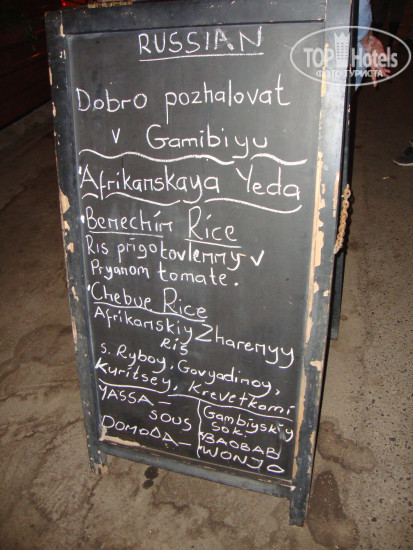 RUSSIAN
Dobro pozhalovat
v Gamibiyu
Afrikanskaya Yeda
Benechin Rice
Ris prigotovlenny v
Pryanom tomate.
Chebue Rice
Afrikanskiy Zharenyy
Ris
s. Ryboy, Govyadinoy,
Kuritsey, Krevetkami
YASSA -
SOUS
DOMODA -
Gambiyskiy
Sok.
BAOBAB
WONJO
TOPHotels
фото туриста